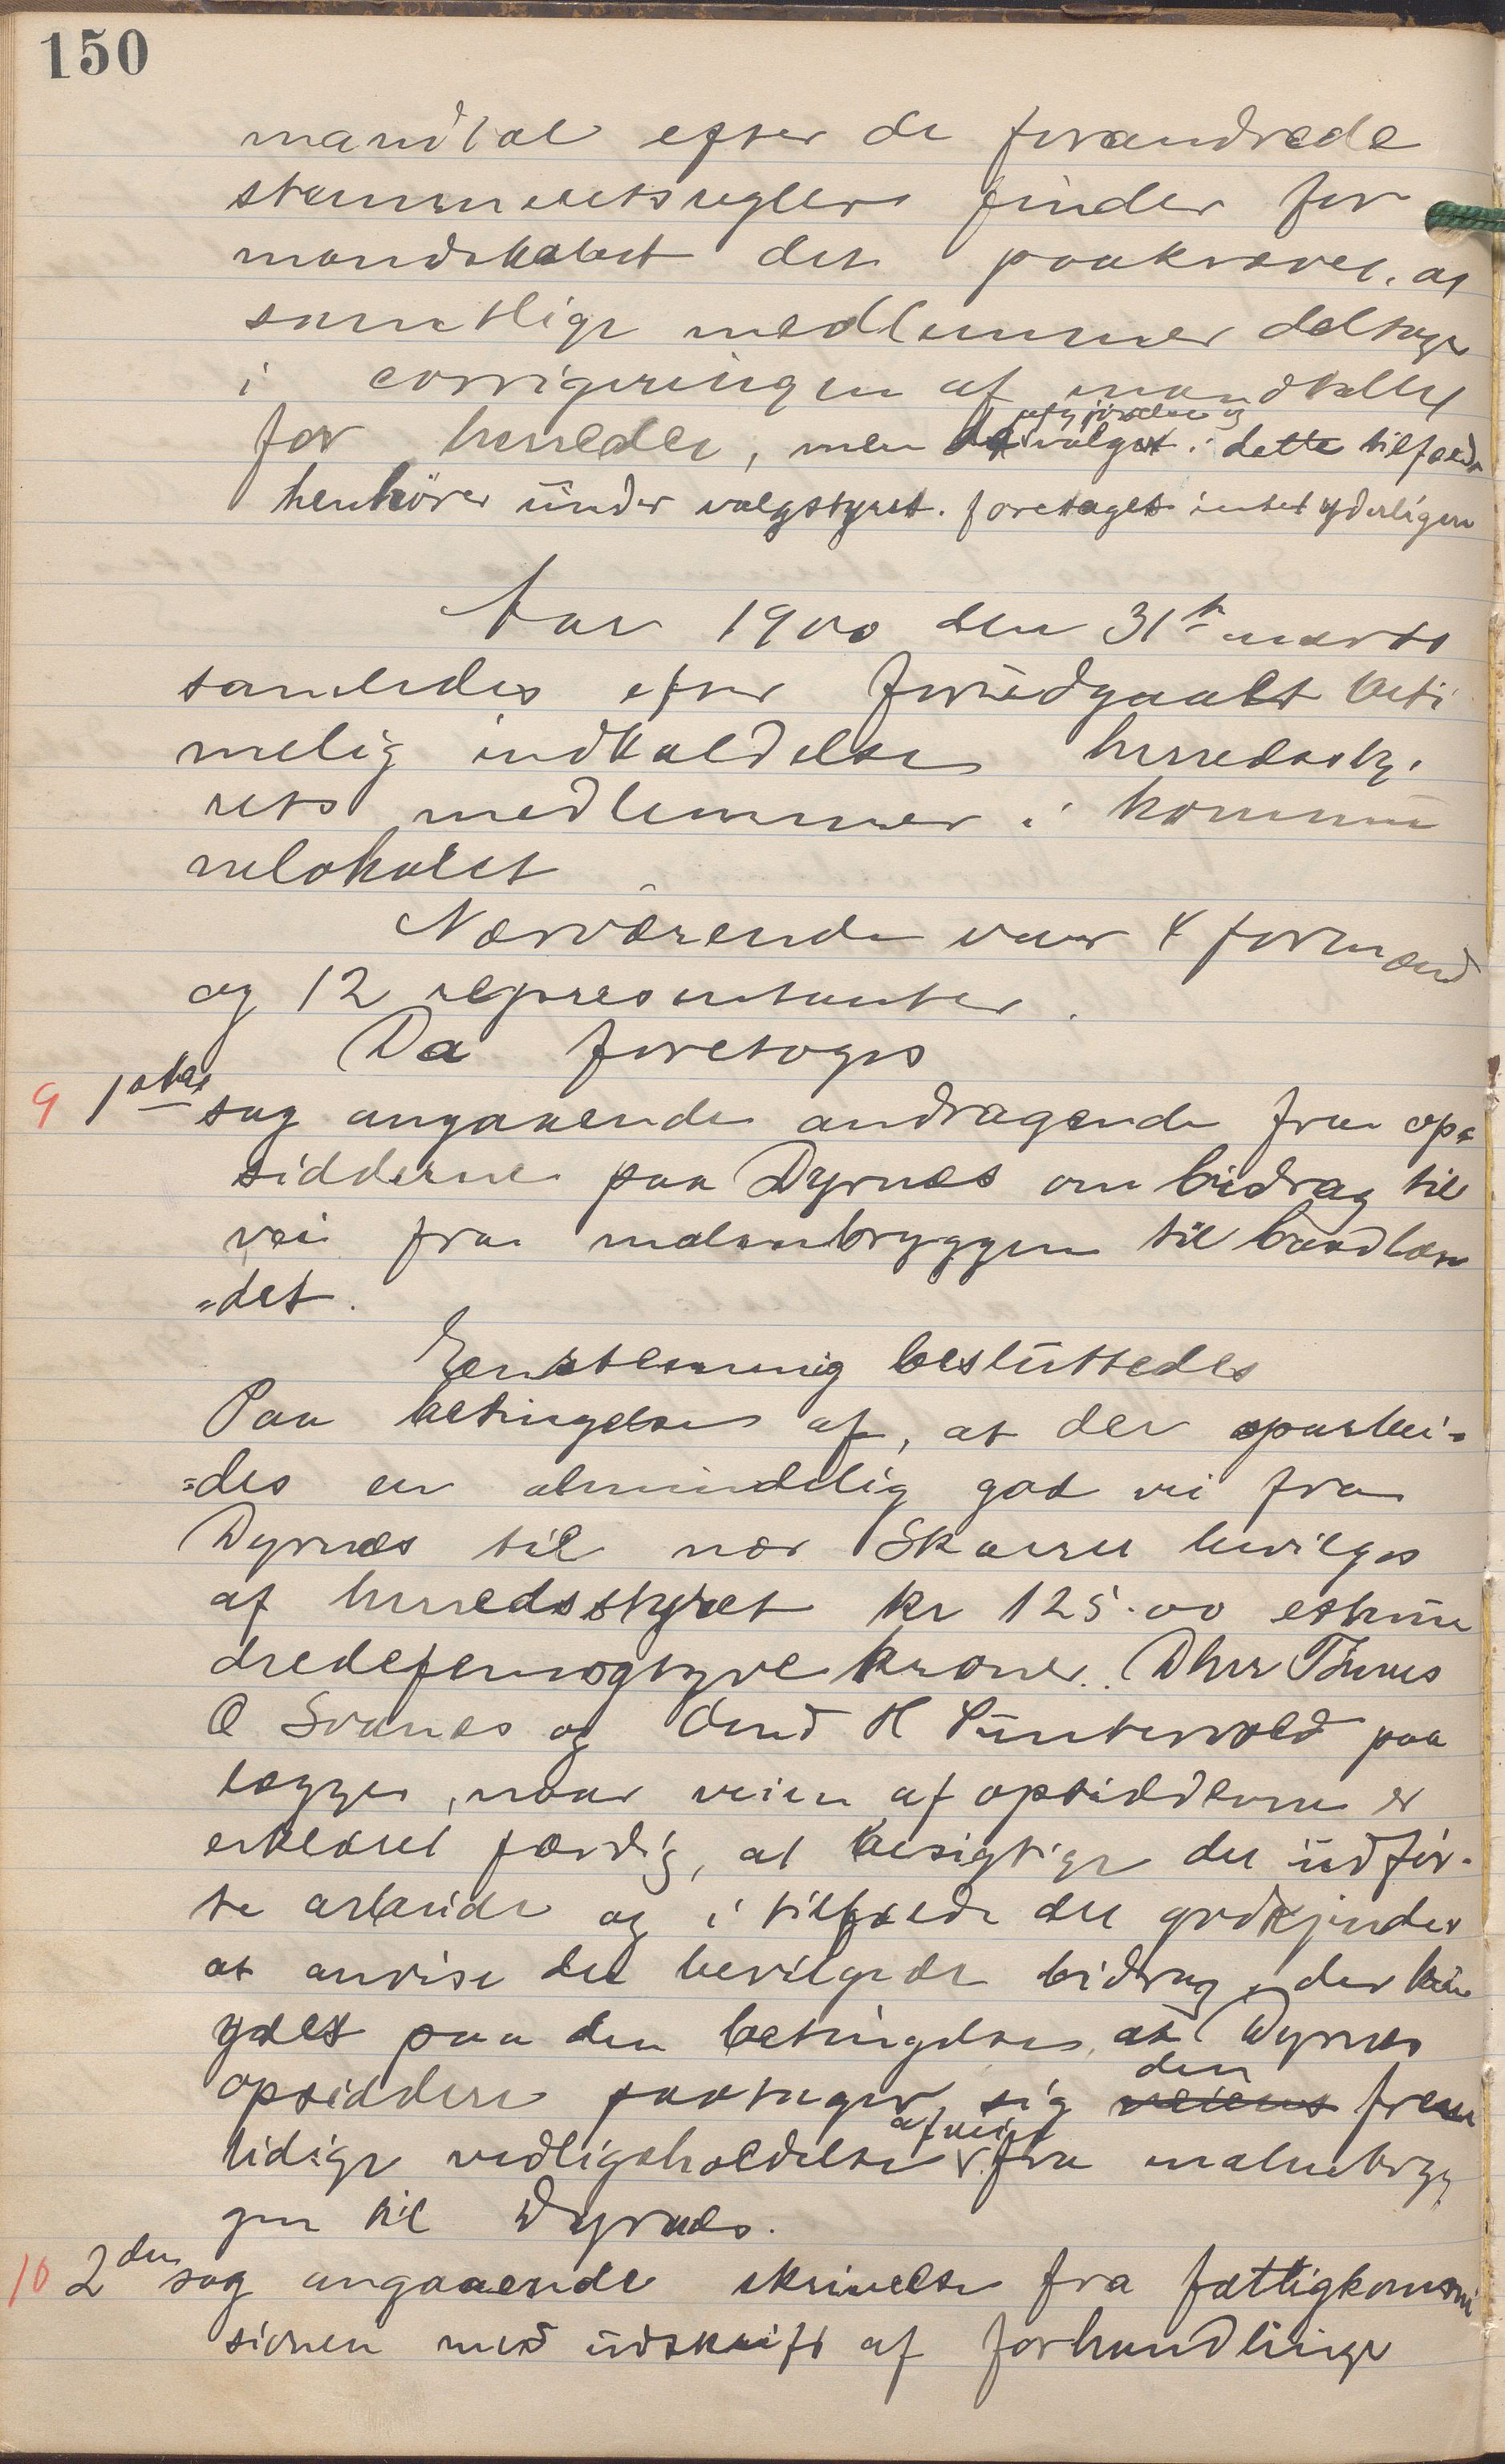 150
mandtal efter de forandrede
stemmeretsregler finder for
mandskabet det paakrævet, at
samtlige medlemmer deltage
i corrigeringen af mandtallet
for herredet, men afgjørelse og
valget i dette tilfælde
henhører under valgstyret. foretaget intet yderligere
Aar 1900 den 31te marts
samledes efter forudgaaet beti
melig indkaldelse herredssty
rets medlemmer i kommu
nelokalet
Nærværende var 4 formænd
og 12 repræsentanter.
Da foretoges
9 1ste sag angaaende andragende fra op=
sidderne paa Dyrnæs om bidrag til
vei fra malmbryggen til baadlæn
"det.
Eenstemmig besluttedes
Paa betingelse af, at der oparbei=
=des en almindelig god vei fra
Dyrnæs til nær Skaret bevilges
af herredsstyret kr 125.00 ethun
dredefemogtyve kroner. Dhrr Thues
O Svanes og Arnd H Suntervold paa
lægges, naar veien af opsidderne er
erklæret færdig, at besigtige det udfør-
te arbeide og i tilfælde det godkjendes
at anvise det bevilgede bidrag, der kun
ydes paa den betingelse, at Dyrnæs
opsiddere paatager sig veiens den frem
tidige vedligeholdelse af vei fra malmbryg
gen til Dyrnæs.
10 2den sag angaaende skrivelse fra fattigkommi
sionen med udskrift af forhandlinge